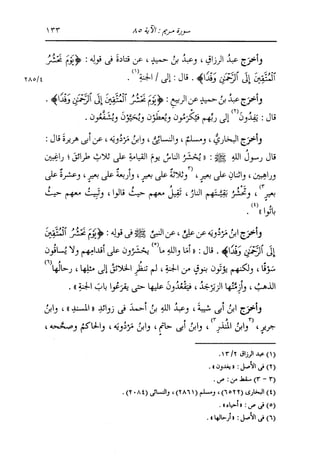 سورة مريم : الآية ٨٥
١٣٣
وأخرج عبدُ الرزاقِ ، وعبدُ بنُ حميدٍ ، عن قتادةَ في قولِه : ﴿يَوْمَ نَحْشُرُ
ٱلْمُتَّقِينَ إِلَى ٱلرَّحْمَٰنِ وَفْدًا﴾ . قال : إلى / الجنةِ(١) .
٢٨٥/٤
وأخرج عبدُ بنُ حميدٍ عن الربيعِ : ﴿يَوْمَ نَحْشُرُ ٱلْمُتَّقِينَ إِلَى ٱلرَّحْمَٰنِ وَفْدًا﴾ .
قال : يَفِدُون(٢) إلى ربِّهم فيُكرَمُون ويُعطَوْن ويُحَيَّوْن ويُشَفَّعُون .
وأخرَج البخاريُّ ، ومسلمٌ ، والنسائيُّ ، وابنُ مَرْدُويَه ، عن أبي هريرةَ قال :
قال رسولُ اللهِ ﷺ : « يُحْشَرُ الناسُ يومَ القيامةِ على ثلاثِ طرائقَ ؛ راغِبين
وراهِبين ، واثنانِ على بعيرٍ ، (٣وثلاثةٌ على بعيرٍ ، وأربعةٌ على بعيرٍ ، وعشرةٌ على
بعيرٍ٣) ، وتَحْشُرُ بَقِيَّتَهم النارُ ، تَقِيلُ معهم حيثُ قالوا ، وتَبِيتُ معهم حيثُ
باتُوا »(٤) .
وأخرَج ابنُ مَرْدُويَه عن عليٍّ ، عن النبيِّ ﷺ في قولِه : ﴿يَوْمَ نَحْشُرُ ٱلْمُتَّقِينَ
إِلَى ٱلرَّحْمَٰنِ وَفْدًا﴾ . قال : « أما واللهِ ما(٥) يُحشَرُون على أقدامِهم ولا يُساقُون
سَوْقًا ، ولكنهم يُؤتَون بنوقٍ من الجنةِ ، لم تنظُرِ الخلائقُ إلى مثلِها ، رحالُها(٦)
الذهبُ ، وأزِمَّتُها الزبرجَدُ ، فيَقْعُدُون عليها حتى يقرَعُوا بابَ الجنةِ » .
وأخرَج ابنُ أبي شيبةَ ، وعبدُ اللهِ بنُ أحمدَ في زوائدِ «المسندِ» ، وابنُ
جريرٍ ، (٣وابنُ المنذرِ٣) ، وابنُ أبي حاتمٍ ، وابنُ مَرْدُويَه ، والحاكمُ وصحَّحه ،
(١) عبد الرزاق ١٣/٢ .
(٢) في الأصل : «يغدون» .
(٣ - ٣) سقط من : ص .
(٤) البخاري (٦٥٢٢) ، ومسلم (٢٨٦١) ، والنسائي (٢٠٨٤) .
(٥) في ص : «أحياء» .
(٦) في الأصل : «أرحالها» .